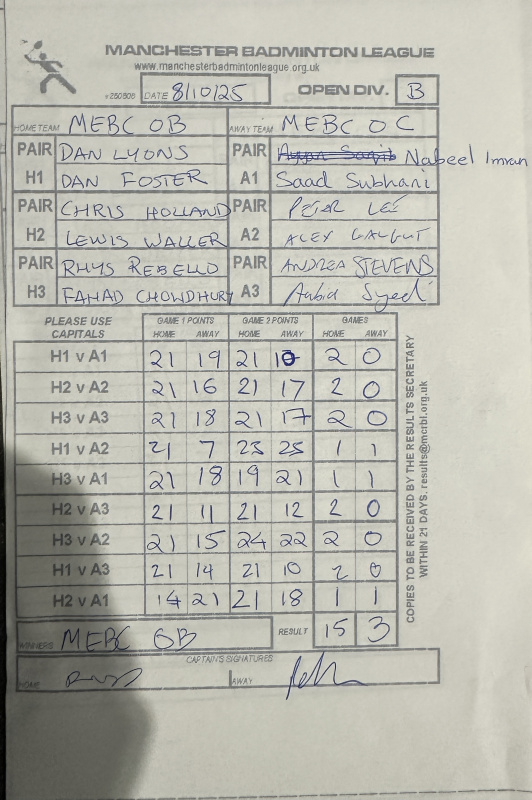 MANCHESTER BADMINTON LEAGUE
www.manchesterbadmintonleague.org.uk
DATE 8/10/25 OPEN DIV. B
HOME TEAM MEBC OB AWAY TEAM MEBC OC
PAIR DAN LYONS PAIR Nabeel Imran
H1 DAN FOSTER A1 Saad Subhani
PAIR CHRIS HOLLAND PAIR PETER LEE
H2 LEWIS WALLER A2 ALEX
PAIR RHYS REBELLO PAIR ANDREA STEVENS
H3 FAHAD CHOWDHURY A3 Syed
PLEASE USE CAPITALS GAME 1 POINTS GAME 2 POINTS GAMES
HOME AWAY HOME AWAY HOME AWAY
H1 v A1 21 19 21 10 2 0
H2 v A2 21 16 21 17 2 0
H3 v A3 21 18 21 17 2 0
H1 v A2 21 7 23 25 1 1
H3 v A1 21 18 19 21 1 1
H2 v A3 21 11 21 12 2 0
H3 v A2 21 15 24 22 2 0
H1 v A3 21 14 21 10 2 0
H2 v A1 14 21 21 18 1 1
WINNERS MEBC OB RESULT 15 3
CAPTAIN'S SIGNATURES
HOME AWAY
COPIES TO BE RECEIVED BY THE RESULTS SECRETARY
WITHIN 21 DAYS. results@mcrbl.org.uk